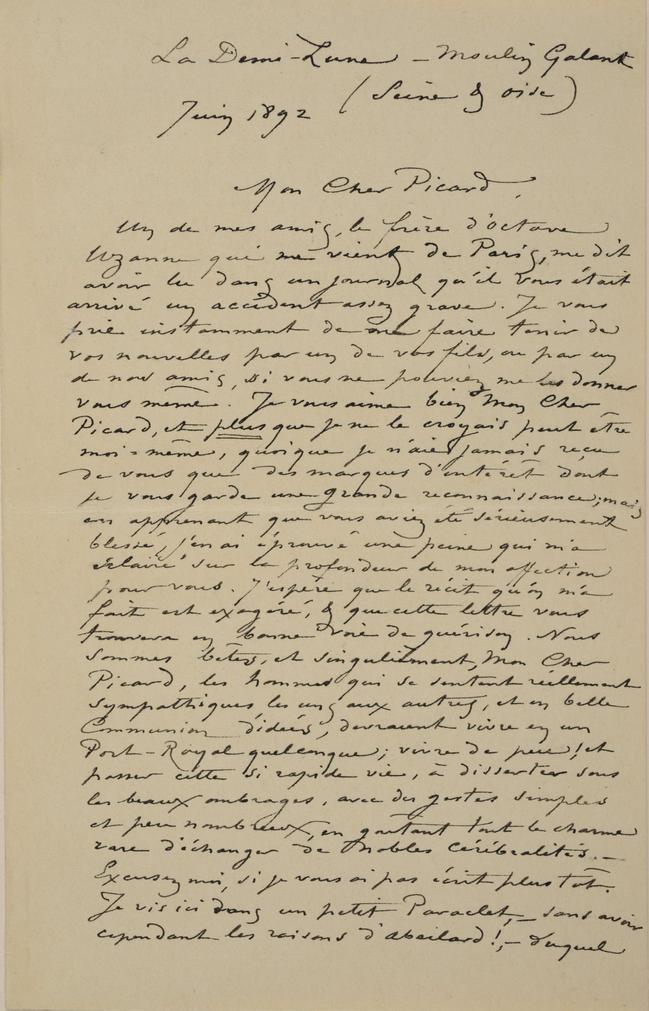 La Demi-Lune – Moulin Galant
(Seine & Oise)
Juin 1892
Mon Cher Picard,
Un de mes amis, le frère d'Octave
Uzanne qui me vient de Paris, me dit
avoir lu dans un journal qu'il vous était
arrivé un accident assez grave. Je vous
prie instamment de me faire tenir de
vos nouvelles par un de vos fils, ou par un
de nos amis, si vous ne pouviez me les donner
vous même. Je vous aime bien Mon Cher
Picard, et plus que je ne le croyais peut être
moi-même, quoique je n'aie jamais reçu
de vous que des marques d'intérêt dont
je vous garde une grande reconnaissance; mais
en apprenant que vous aviez été sérieusement
blessé, j'en ai éprouvé une peine qui m'a
éclairé sur la profondeur de mon affection
pour vous. J'espère que le récit qu'on m'a
fait est exagéré, & que cette lettre vous
trouvera en bonne voie de guérison. Nous
sommes bêtes, et singulièrement, Mon Cher
Picard, les hommes qui se sentent réellement
sympathiques les uns aux autres, et en belle
Communion d'idées, devraient vivre en un
Port-Royal quelconque; vivre de peu! et
passer cette si rapide vie, à disserter sous
les beaux ombrages, avec des gestes simples
et peu nombreux, en goutant tout le charme
rare d'échanger de nobles cérébralités. –
Excusez moi, si je vous ai pas écrit plus tôt.
Je vis ici dans un petit Paraclet, – sans avoir
cependant les raisons d'Abeilard!, – duquel